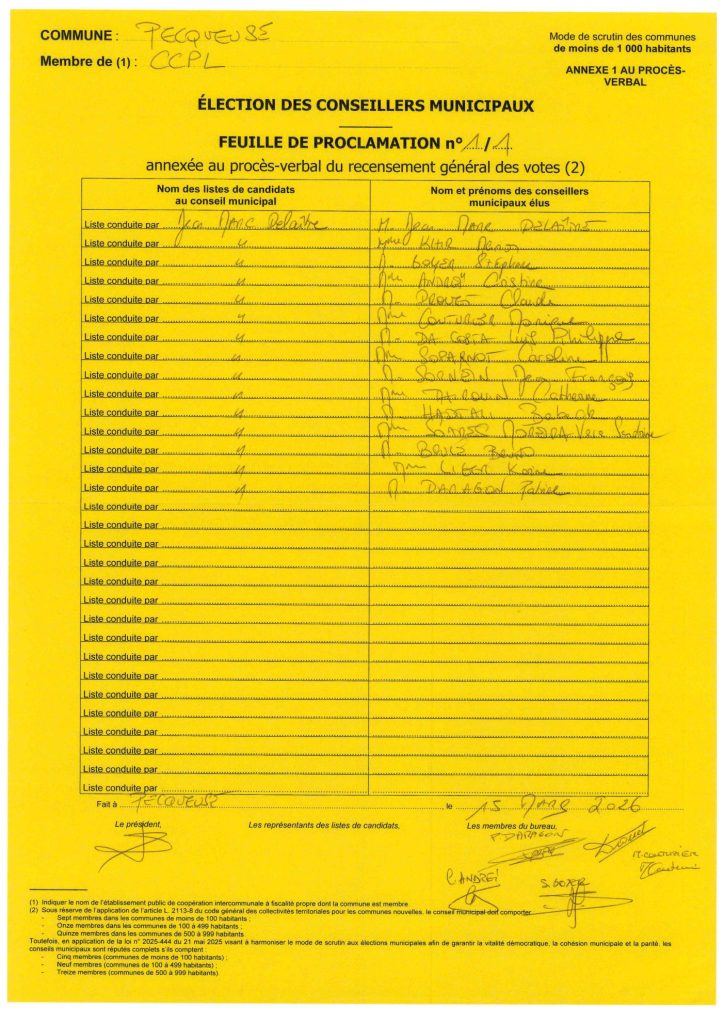 COMMUNE : PECQUEUSE
Membre de (1) : CCPL
Mode de scrutin des communes
de moins de 1 000 habitants
ANNEXE 1 AU PROCÈS-
VERBAL
ÉLECTION DES CONSEILLERS MUNICIPAUX
FEUILLE DE PROCLAMATION n° 1/1
annexée au procès-verbal du recensement général des votes (2)
Nom des listes de candidats
au conseil municipal
Nom et prénoms des conseillers
municipaux élus
Liste conduite par Jean MARC Delaître M. Jean MARC DELAÎTRE
Liste conduite par " Mme KHIR
Liste conduite par " M. BOYER Stéphane
Liste conduite par " Mme ANDRÉÏ Cristine
Liste conduite par " M. DROUET Claude
Liste conduite par " Mme COUTURIER Monique
Liste conduite par " M. DA COSTA Luis Philippe
Liste conduite par " Mme SOPARNOT Caroline
Liste conduite par " M. Jean François
Liste conduite par " Mme Catherine
Liste conduite par " M. Babak
Liste conduite par " Mme MOREIRA Vera Sandrine
Liste conduite par " M. Bruno
Liste conduite par " Mme LIGER Karine
Liste conduite par " M. DARAGON
Liste conduite par
Liste conduite par
Liste conduite par
Liste conduite par
Liste conduite par
Liste conduite par
Liste conduite par
Liste conduite par
Liste conduite par
Liste conduite par
Liste conduite par
Liste conduite par
Liste conduite par
Liste conduite par
Liste conduite par
Liste conduite par
Fait à PECQUEUSE le 15 MARS 2026
Le président,
Les représentants des listes de candidats,
Les membres du bureau,
P. DARAGON
M. COUTURIER
C. ANDREÏ
S. BOYER
(1) Indiquer le nom de l'établissement public de coopération intercommunale à fiscalité propre dont la commune est membre.
(2) Sous réserve de l'application de l'article L. 2113-8 du code général des collectivités territoriales pour les communes nouvelles, le conseil municipal doit comporter :
- Sept membres dans les communes de moins de 100 habitants ;
- Onze membres dans les communes de 100 à 499 habitants ;
- Quinze membres dans les communes de 500 à 999 habitants
Toutefois, en application de la loi n° 2025-444 du 21 mai 2025 visant à harmoniser le mode de scrutin aux élections municipales afin de garantir la vitalité démocratique, la cohésion municipale et la parité, les
conseils municipaux sont réputés complets s'ils comptent :
- Cinq membres (communes de moins de 100 habitants) ;
- Neuf membres (communes de 100 à 499 habitants) ;
- Treize membres (communes de 500 à 999 habitants).